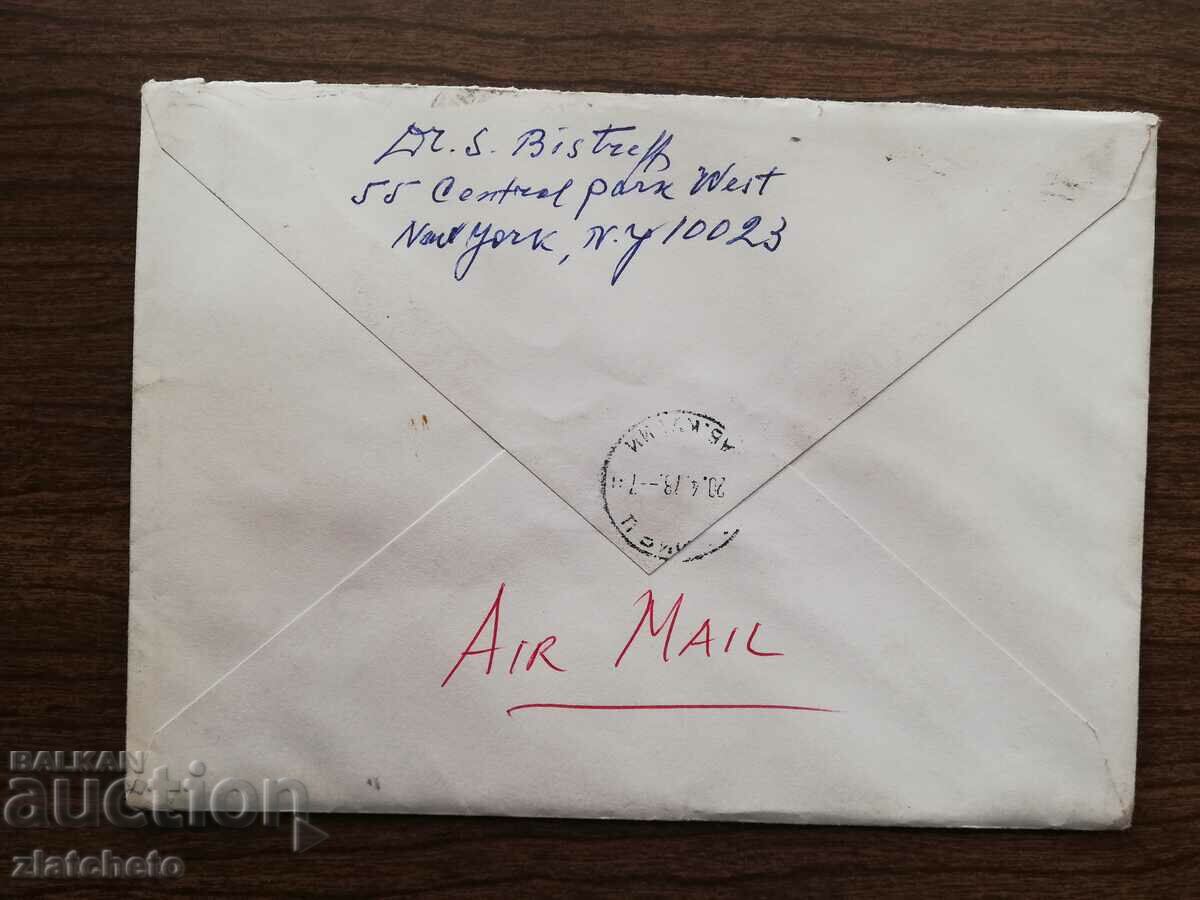 Dr. S. Bistreff
55 Central Park West
New York, N.Y 10023
20.4.78.--7
AIR MAIL
BALKAN
auction
zlatcheto